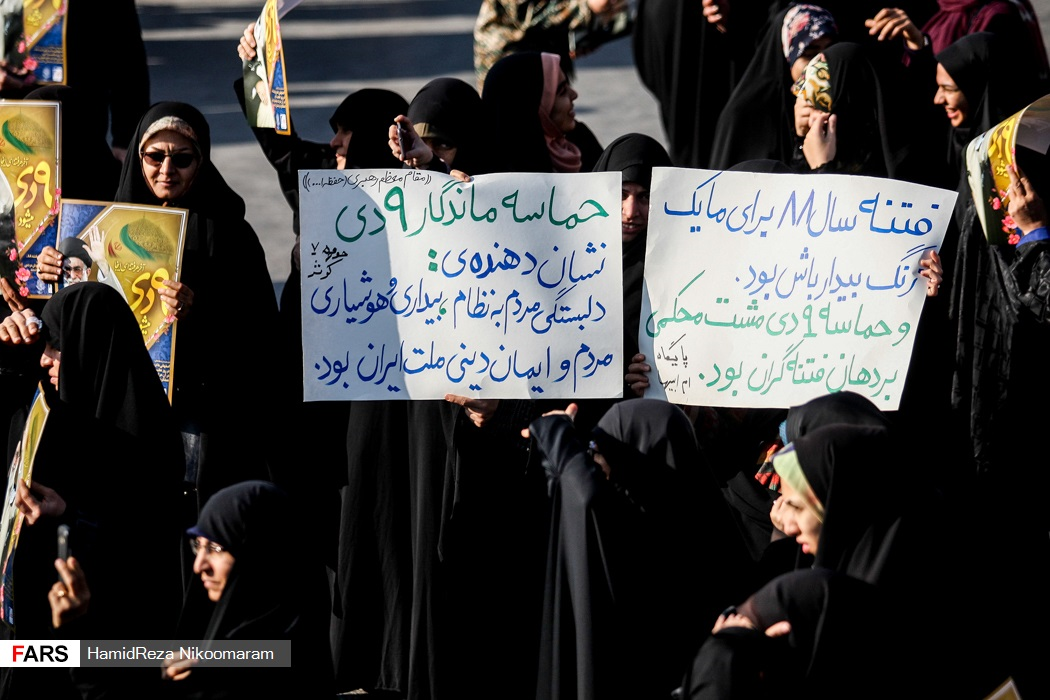 ((مقام معظم رهبری (حفظه ا...)))
حماسه ماندگار ۹ دی
نشان دهنده‌ی:
دلبستگی مردم به نظام، بیداری و هوشیاری
مردم و ایمان دینی ملت ایران بود.
حوزه ۷
کوثر
فتنه سال ۸۸ برای ما یک
زنگ بیدار باش بود.
و حماسه ۹ دی مشت محکمی
بر دهان فتنه گران بود.
پایگاه
ام ابیها
۹ دی
۹ دی
FARS HamidReza Nikoomaram